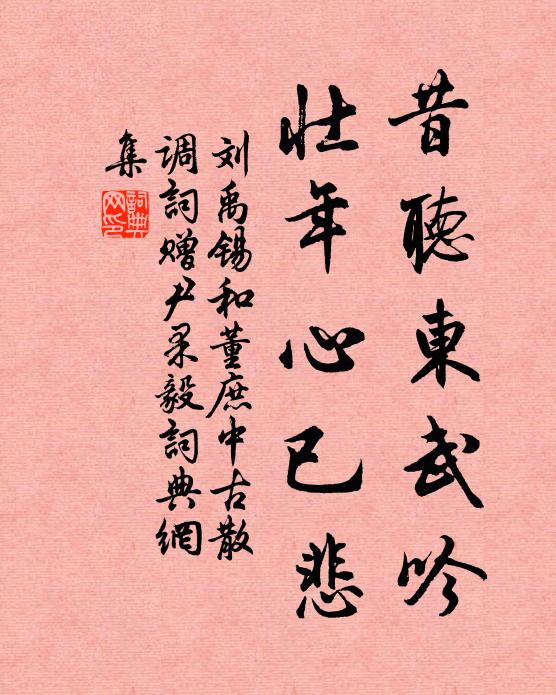 昔聽東武吟
壮年心已悲
刘禹锡和董庶中古散
调詞赠尹果毅詞典網
集
詞典网印